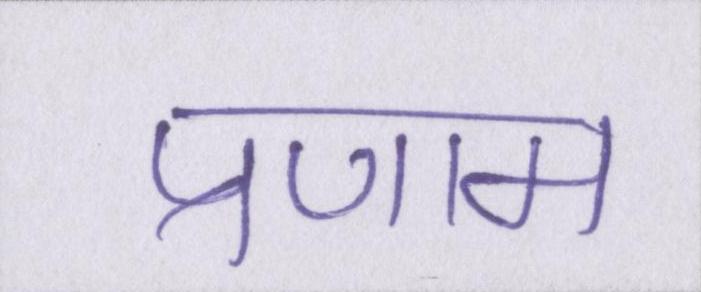 प्रणाम